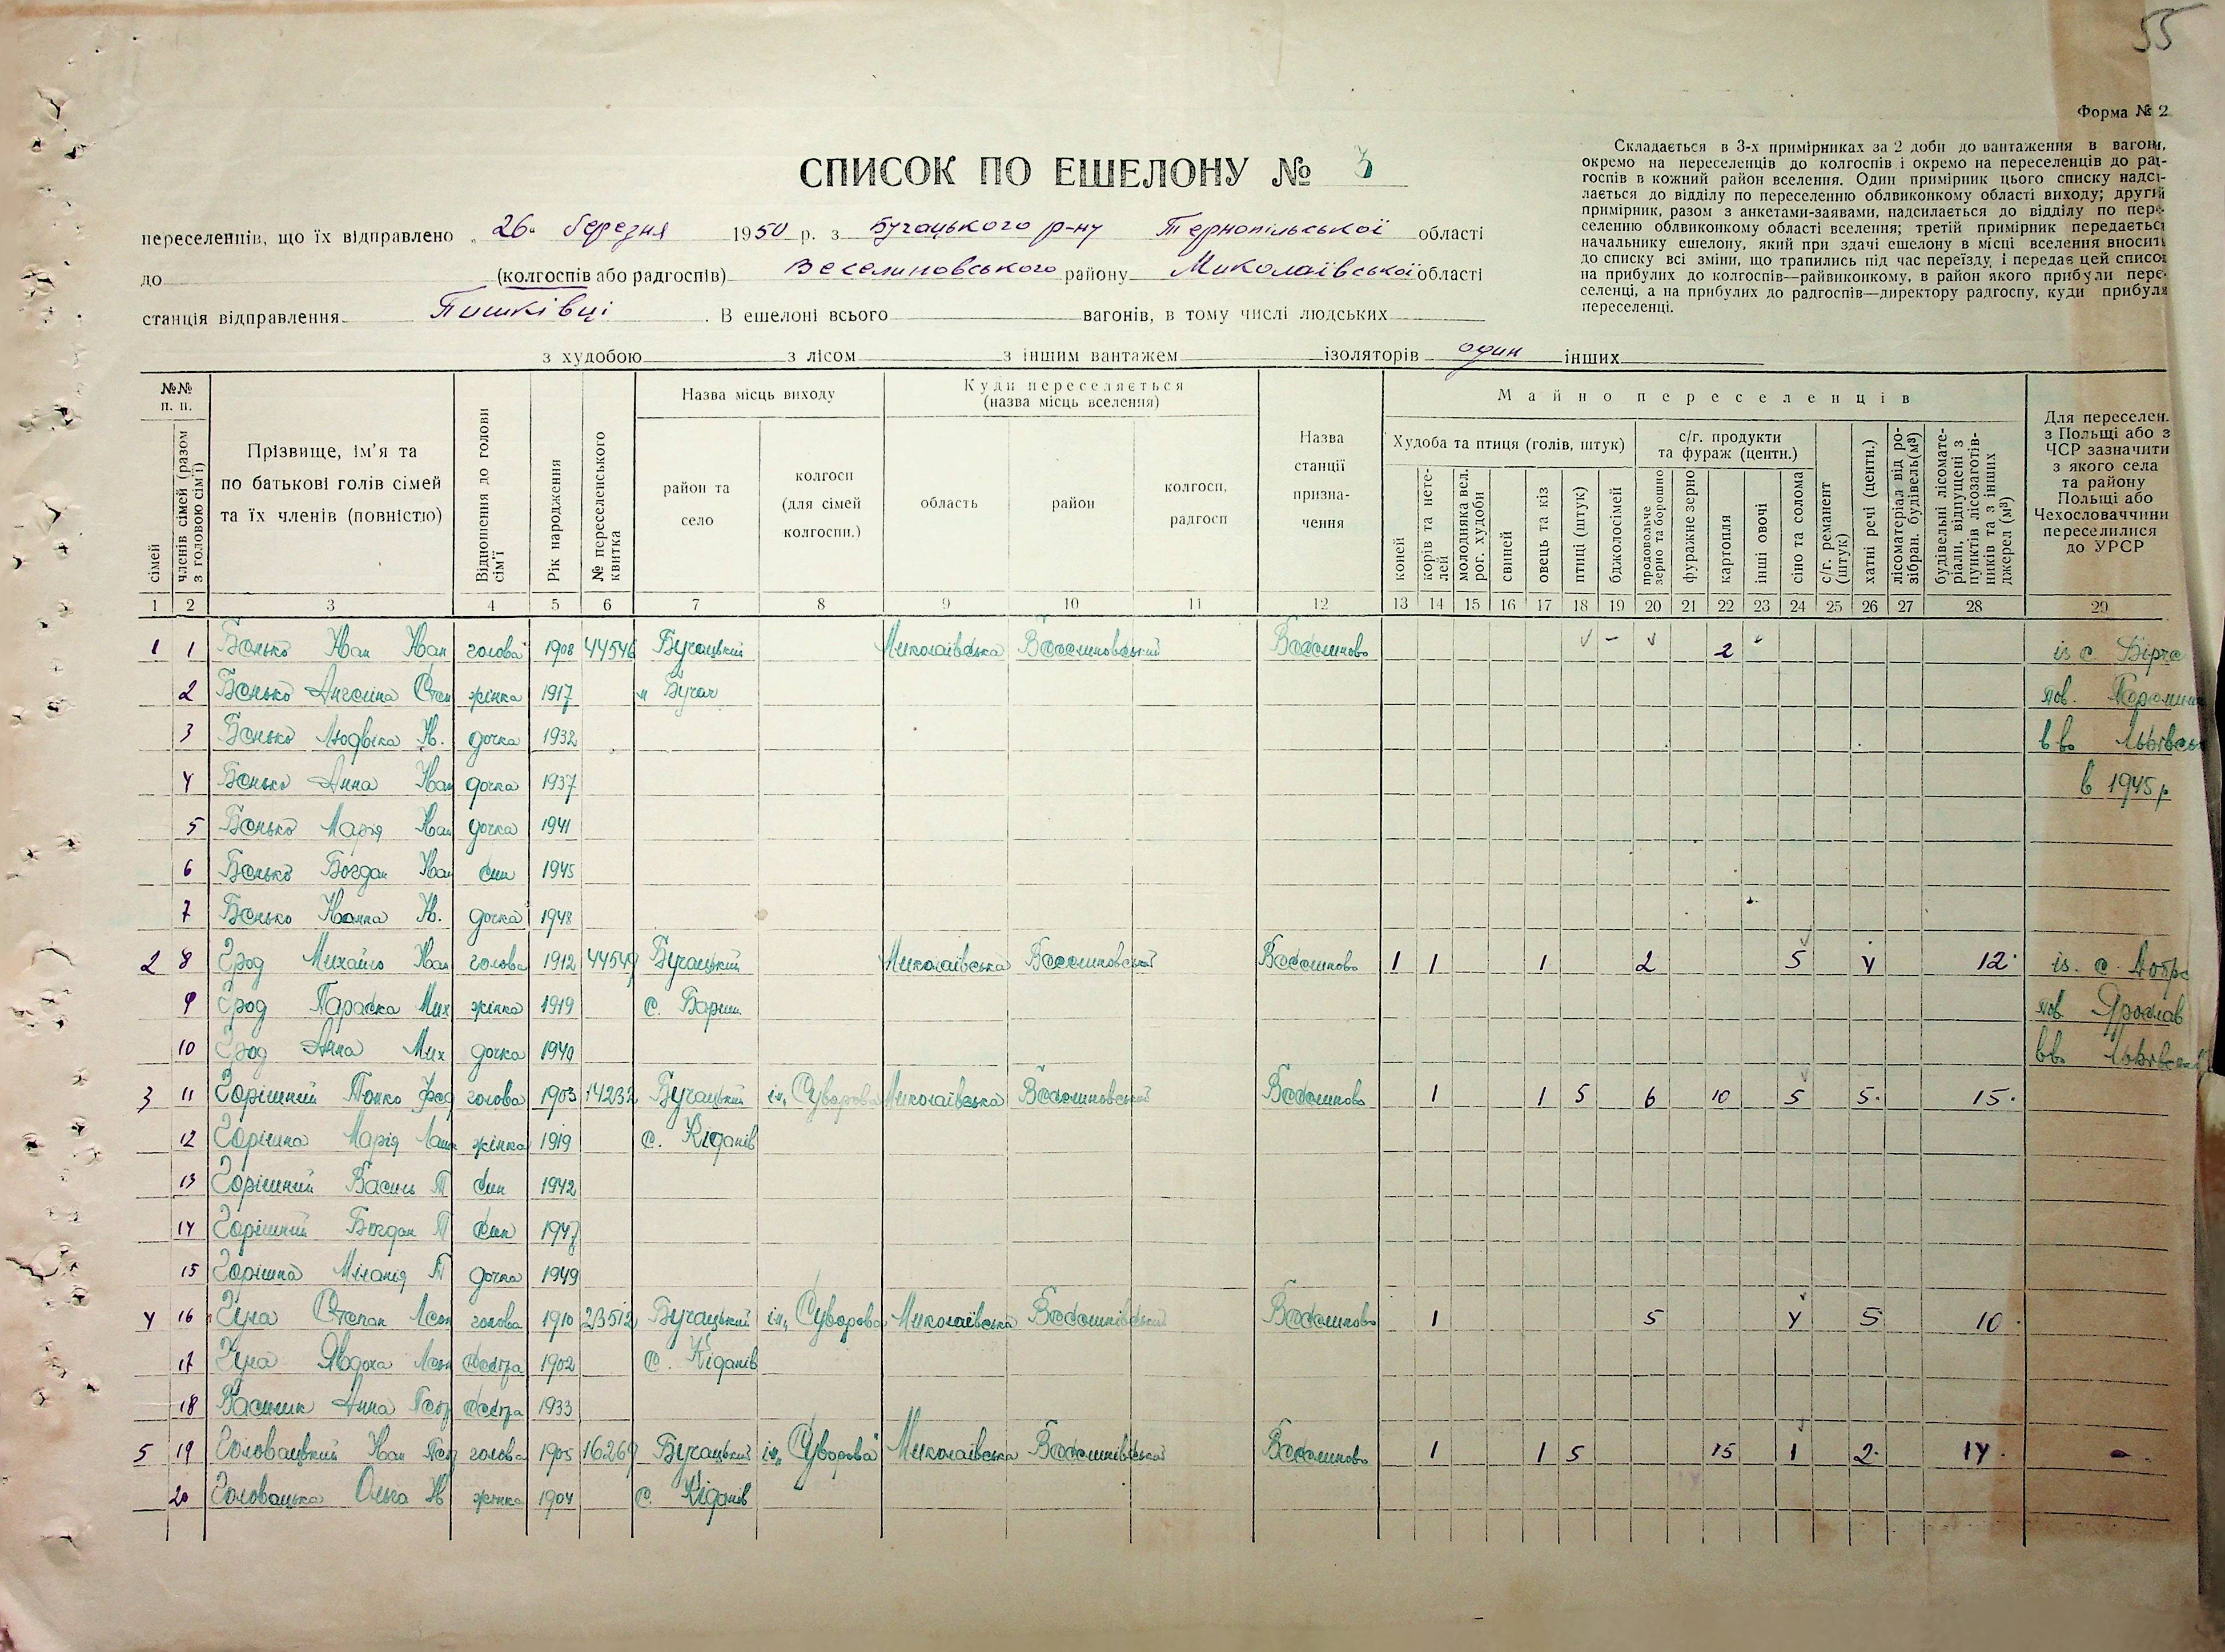 55
Форма № 2
Складається в 3-х примірниках за 2 доби до вантаження в вагони,
окремо на переселенців до колгоспів і окремо на переселенців до рад-
госпів в кожний район вселення. Один примірник цього списку надси-
лається до відділу по переселенню облвиконкому області виходу; другий
примірник, разом з анкетами-заявами, надсилається до відділу по пере-
селенню облвиконкому області вселення; третій примірник передається
начальнику ешелону, який при здачі ешелону в місці вселення вносить
до списку всі зміни, що трапились під час переїзду, і передає цей список
на прибулих до колгоспів—райвиконкому, в район якого прибули пере-
селенці, а на прибулих до радгоспів—директору радгоспу, куди прибули
переселенці.
СПИСОК ПО ЕШЕЛОНУ № 3
переселенців, що їх відправлено „26" березня 1950 р. з Бучацького р-ну Тернопільської області
до (колгоспів або радгоспів) Веселиновського району Миколаївської області
станція відправлення Пишківці. В ешелоні всього вагонів, в тому числі людських
з худобою з лісом з іншим вантажем ізоляторів один інших
№№ п. п.
сімей
членів сімей (разом з головою сім'ї)
Прізвище, ім'я та по батькові голів сімей та їх членів (повністю)
Відношення до голови сім'ї
Рік народження
№ переселенського квитка
Назва місць виходу
район та село
колгосп (для сімей колгоспн.)
Куди переселяється (назва місць вселення)
область
район
колгосп, радгосп
Назва станції призна-чення
Майно переселенців
Худоба та птиця (голів, штук)
коней
корів та нете-лей
молодняка вел. рог. худоби
свиней
овець та кіз
птиці (штук)
бджолосімей
с/г. продукти та фураж (центн.)
продовольче зерно та борошно
фуражне зерно
картопля
інші овочі
сіно та солома
с/г. реманент (штук)
хатні речі (центн.)
лісоматеріал від ро-зібран. будівель (м³)
будівельні лісомате-ріали, відпущені з пунктів лісозаготів-ників та з інших джерел (м³)
Для переселен. з Польщі або з ЧСР зазначити з якого села та району Польщі або Чехословаччини переселилися до УРСР
1 2 3 4 5 6 7 8 9 10 11 12 13 14 15 16 17 18 19 20 21 22 23 24 25 26 27 28 29
1 1 Бенько Іван Іван голова 1908 44546 Бучацький Миколаївська Веселиновський Веселиново 2 із с. Бірче
2 Бенько Ангеліна Степ жінка 1917 м Бучач пов.
3 Бенько Людвіка Ів. дочка 1932 вв. Львівськ
4 Бенько Анна Іван дочка 1937 в 1945 р
5 Бенько Марія Іван дочка 1941
6 Бенько Богдан Іван син 1945
7 Бенько Іванна Ів. дочка 1948
2 8 Михайло Іван голова 1912 44549 Бучацький Миколаївська Веселиновської Веселиново 1 1 1 2 5 4 12 із. с. Добре
9 Параска Мих жінка 1919 с. Бариш пов Ярослав
10 Анна Мих дочка 1940 вв. Львівськ
3 11 Горішний Панко Фед голова 1903 14232 Бучацький ім. Суворова Миколаївська Веселиновський Веселиново 1 1 5 6 10 5 5 15
12 Горішна Марія жінка 1919 с. Кіданів
13 Горішний Василь П син 1942
14 Горішний Богдан П син 1947
15 Горішна Міланія П дочка 1949
4 16 Степан Леон голова 1910 23512 Бучацький ім. Суворова Миколаївська Веселинівський Веселиново 1 5 4 5 10
17 Явдоха Леон сестра 1902 с. Кіданів
18 Василик Анна Пет сестра 1933
5 19 Головацький Іван Пет голова 1905 16269 Бучацький ім. Суворова Миколаївська Веселинівський Веселиново 1 1 5 15 1 2 14 -
20 Головацька Ольга Ів жінка 1904 с. Кіданів